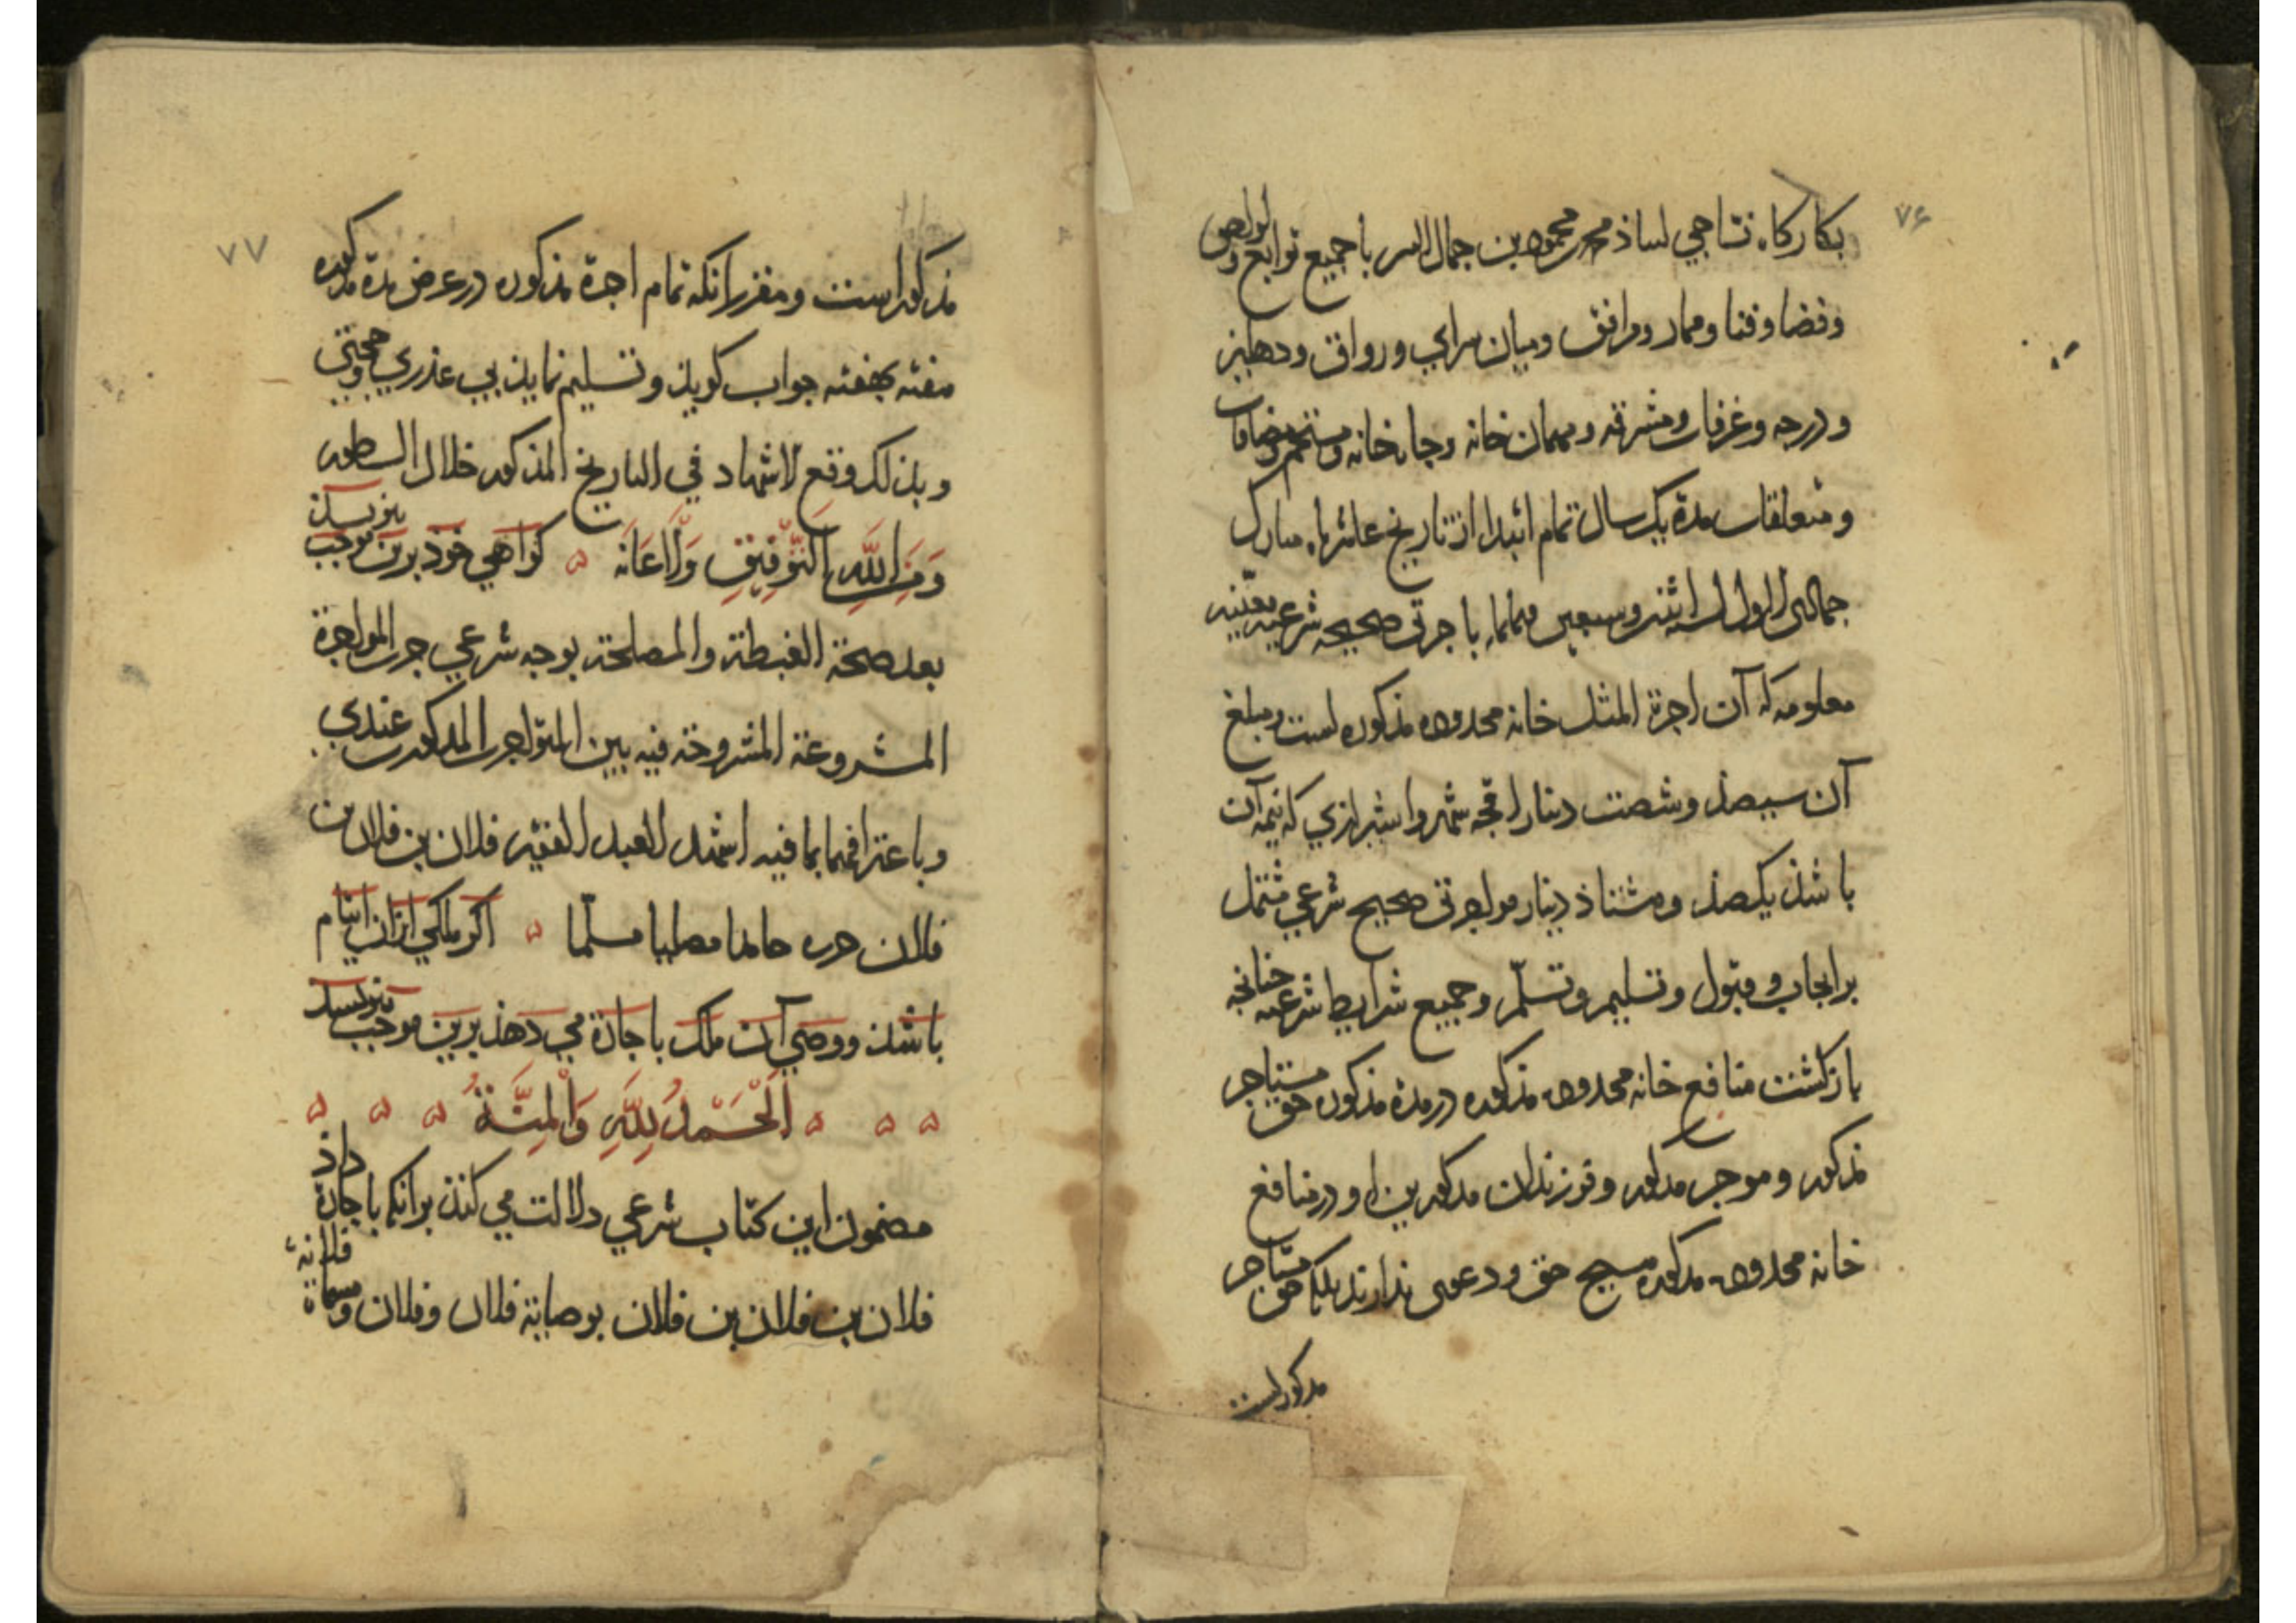 ۷۶
بکارکاه نساجی استاذ محمد بن محمود بن جمال الدین با جمیع توابع و لواحق
و فضا و فنا و ممار و مرافق و میان سرای و رواق و دهلیز
و درجه و غرفات و مشرقه و مهمان خانه و جامه خانه و مستحم و مضافات
و متعلقات مدة یک سال تمام ابتدا از تاریخ عاشر ماه مبارک
جمادی الاول لسنه اثنین و سبعین و ثمانمایه باجرتی صحیحه شرعیه معینه
معلومه که آن اجرة المثل خانه محدوده مذکوره است و مبلغ
آن سیصذ و شصت دینار اقجه شمرو اشیرازی که نیمه آن
باشذ یکصذ و هشتاذ دینار مواجرتی صحیح شرعی مشتمل
بر ایجاب و قبول و تسلیم و تسلّم و جمیع شرایط شرعیه چنانچه
بازکشت منافع خانه محدوده مذکوره در مدة مذکوره حق مستاجر
مذکور و موجر مذکور و فرزندان مذکورین او در منافع
خانه محدوده مذکوره هیچ حق و دعوی ندارند بلکه حق مستاجر
مذکور است
۷۷
مذکور است و مقرر انکه تمام اجرة مذکوره در عرض مدة مذکوره
هفته بهفته جواب کویذ و تسلیم نمایذ بی عذری و حجتی
و بذلک وقع الاشهاد فی التاریخ المذکور خلال السطور
وَمِنَ اللَّهِ التَّوْفِیقِ وَالْاعَانَه ه کواهی خوذ برین موجب بنویسذ
بعد صحة الغبطة والمصلحة بوجه شرعی جرت المواجرة
المشروعة المشروحة فیه بین المتواجرین المذکورین عندی
و باعترافهما بما فیه اشهد العبد الفقیر فلان بن فلان بن
فلان حامدا مصلیا مسلّما ه اکر ملکی ازان ایتام
باشذ و وصی آن ملک باجارة می دهذ برین موجب بنویسذ
ه ه ه اَلْحَمْدُ لِلَّهِ وَالْمِنَّةُ ه ه ه
مضمون این کتاب شرعی دلالت می کنذ بر انکه باجارة داذ
فلان بن فلان بن فلان بوصایة فلان و فلان و مسماة فلانة